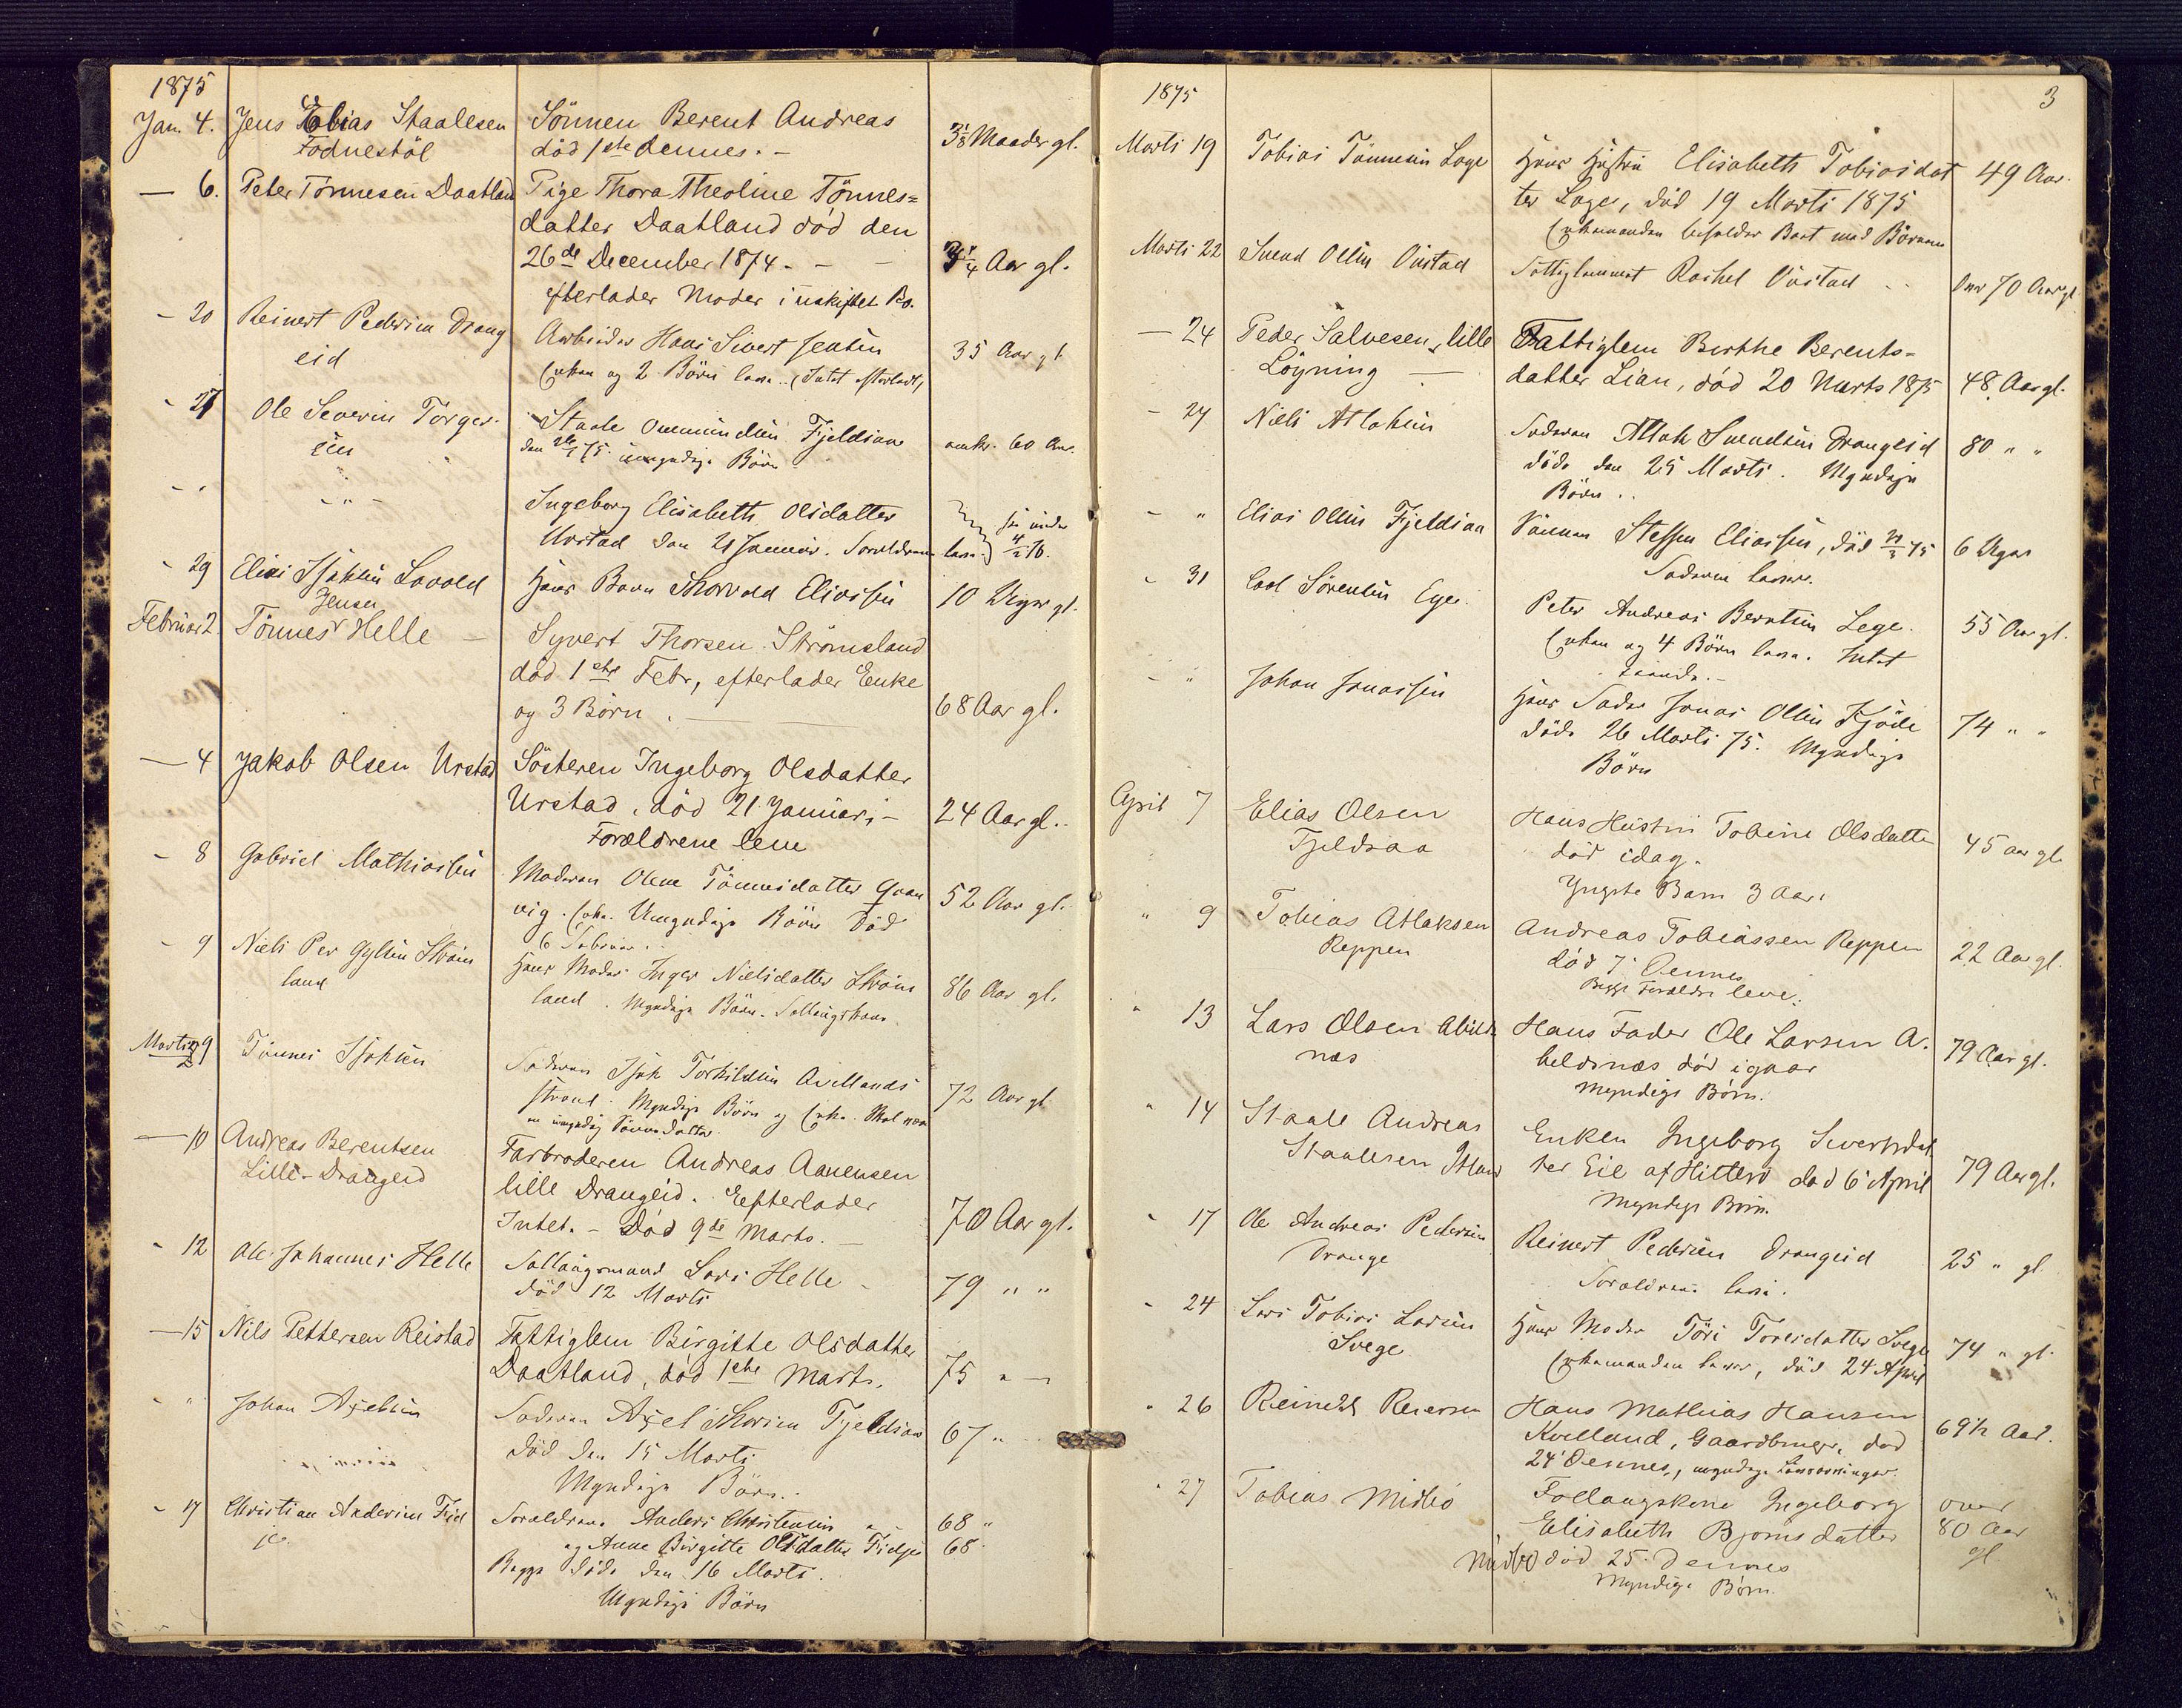 1875
Jan. 4. Jens Tobias Staalesen Sönnen Berent Andreas
Fodnestöl död 1ste dennes. - 3⅛ Maader gl.
— 6. Peter Tönnesen Daatland Pige Thora Theoline Tönnes=
datter Daatland död den
26de December 1874. - - 3¼ Aar gl.
efterlader Moder i uskiftet Bo.
- 20 Reinert Pedersen Drang Arbeider Hans Sivert Jensen 35 Aar gl.
eid Enke og 2 Börn leve. (Intet efterladt)
- 27 Ole Severin Torger Staale Ommundsen Fjeldsaa omkr. 60 Aar.
sen den 75. umyndige Börn
- " - " - Ingeborg Elisabeth Olsdatter
Urstad den 21 Januar. Forældrene leve.
- 29 Elias Isaksen Lovold Hans Barn Thorvald Eliassen 10 Uger gl.
Jensen
Februar 2. Tönnes Helle — Syvert Thorsen Strömsland
död 1ste Febr, efterlader Enke
og 3 Börn. — 68 Aar gl.
— 4 Jakob Olsen Urstad Sösteren Ingeborg Olsdatter
Urstad, död 21 Januari - 24 Aar gl.
Forældrene leve
- 8 Gabriel Mathiassen Moderen Olene Tönnesdatter Qvan
vig. Enke. Umyndige Börn Död 52 Aar gl.
6 Februar.
- 9 Niels Per Gylsen Ström Hans Moder Inger Nielsdatter Ström
land land. Myndige Börn. Follaugskone 86 Aar gl.
Marts 9 Tönnes Isaksen Faderen Isak Torkildsen Avellands
strand. Myndige Börn og Enke. Skal være 72 Aar gl
en umyndig Sönnedatter.
— 10 Andreas Berentsen Farbroderen Andreas Aanensen
Lille-Drangeid lille Drangeid. Eefterlader
Intet. - Död 9de Marts. — 70 Aar gl.
- 12 Ole Johannes Helle Follaugsmand Lars Helle - 79 " "
död 12 Marts
— 15 Nils Pettersen Reistad Fattiglem Birgitte Olsdatter
Daatland, död 1ste Marts. 75 " —
- " Johan Axelsen Faderen Axel Thorsen Fjeldsaa 67 "
död den 15 Marts
Myndige Börn.
- 17 Christian Andersen Fid Forældrene Anders Christensen 68 "
je. og Anne Birgitte Olsdatter Fidje 68
Begge döde den 16 Marts.
Myndige Börn
1875 3
Marts 19 Tobias Tönnesen Lage Hans Hustru Elisabeth Tobiasdat 49 Aar.
ter Lage, död 19 Marts 1875
Enkemanden beholder Boet med Börnene
Marts 22 Svend Olsen Östad Fattiglemmet Rachel Östad - - Over 70 Aar gl
— 24 Peder Salvesen, lille Fattiglem Birthe Berents-
Löyning — datter Lian, död 20 Marts 1875 48 Aar gl.
- 24 Niels Atlaksen Faderen Atlak Svendsen Drangeid 80 " "
döde den 25 Marts. Myndige
Börn..
- " Elias Olsen Fjeldsaa Sönnen Steffen Eliassen, död 75 6 Uger
Faderen lever.
- 31 Carl Sörensen Ege. Peter Andreas Berntsen Lege. 55 Aar gl.
Enke og 4 Börn leve. Intet
- " Johan Jonassen Hans Fader Jonas Olsen Kjöde 74 " "
döde 26 Marts 75. Myndige
Börn
April 7 Elias Olsen Hans Hustru Tobine Olsdatter 45 aar gl.
Fjeldsaa död idag.
Yngste Barn 3 Aar.
" 9 Tobias Atlaksen Andreas Tobiassen Reppen 22 Aar gl.
Reppen död 7. Dennes
Begge Forældre leve.
" 13 Lars Olsen Abilds Hans Fader Ole Larsen A. 79 Aar gl.
næs beldsnæs död igaar
Myndige Börn.
" 14 Staale Andreas Enken Ingeborg Sivertsdat
Staalesen ter Eie af Hitterö död 6 April 79 Aar gl.
Myndige Börn.
" 17 Ole Andreas Pedersen Reinert Pedersen Drangeid 25 " gl
Drange Forældrene leve.
" 24 Lars Tobias Larsen Hans Moder Töri Torisdatter Svege 74 " gl.
Svege Enkemanden lever, död 24 April
" 26 Reinert Reiersen Hans Mathias Hansen
Kvelland, Gaardbruger, död 69½ Aar.
24' Dennes, myndige Livsarvinger.
" 27 Tobias Midbö Follaugskone Ingeborg over
Elisabeth Bjornsdatter 80 Aar
Midbö död 25. Dennes gl
Myndige Börn.